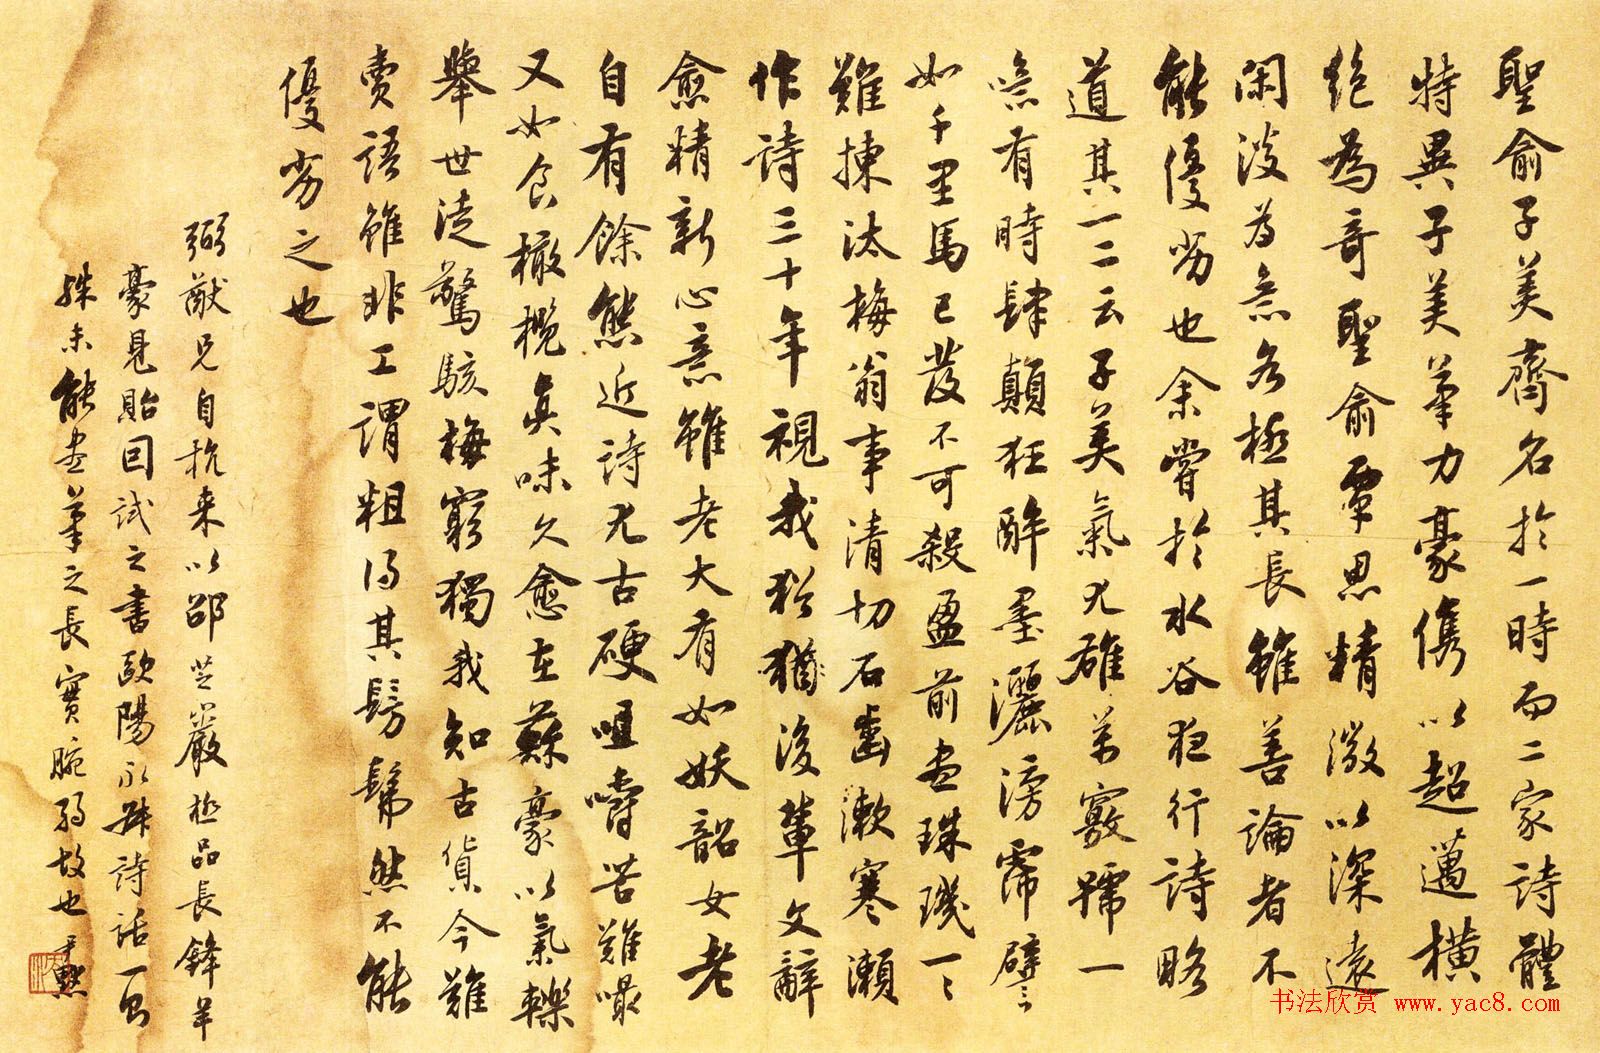 聖俞子美齊名於一時而二家詩體
特異子美筆力豪儁以超邁橫
絕為奇聖俞覃思精微以深遠
閑淡為意各極其長雖善論者不
能優劣也余嘗於水谷夜行詩略
道其一二云子美氣尤雄萬竅號一
噫有時肆顛狂醉墨灑滂霈譬
如千里馬已發不可殺盈前盡珠璣一〻
難揀汰梅翁事清切石齒漱寒瀨
作詩三十年視我猶猶後輩文辭
愈精新心意雖老大有如妖韶女老
自有餘態近詩尤古硬咀嚼苦難嘬
又如食橄欖真味久愈在蘇豪以氣轢
舉世徒驚駭梅窮獨我知古貨今難
賣語雖非工謂粗得其髣髴然不能
優劣之也
弼猷兄自杭来以邵芝巖極品長鋒羊
豪見貽因試之書歐陽永叔詩話一
殊未能盡筆之長實腕弱故也 尹默
书法欣赏 www.yac8.com